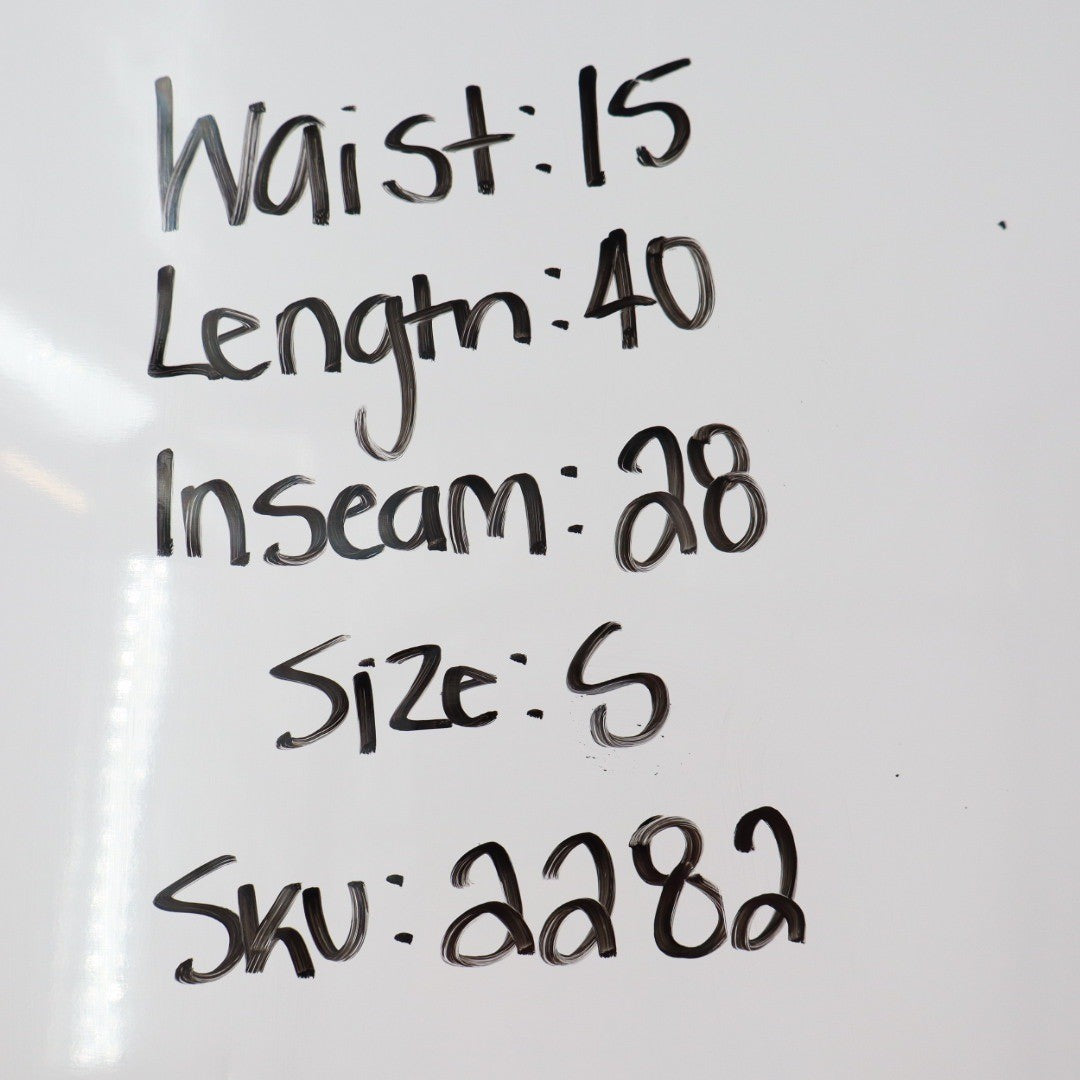 Waist: 15
Length: 40
Inseam: 28
Size: S
Sku: 2282